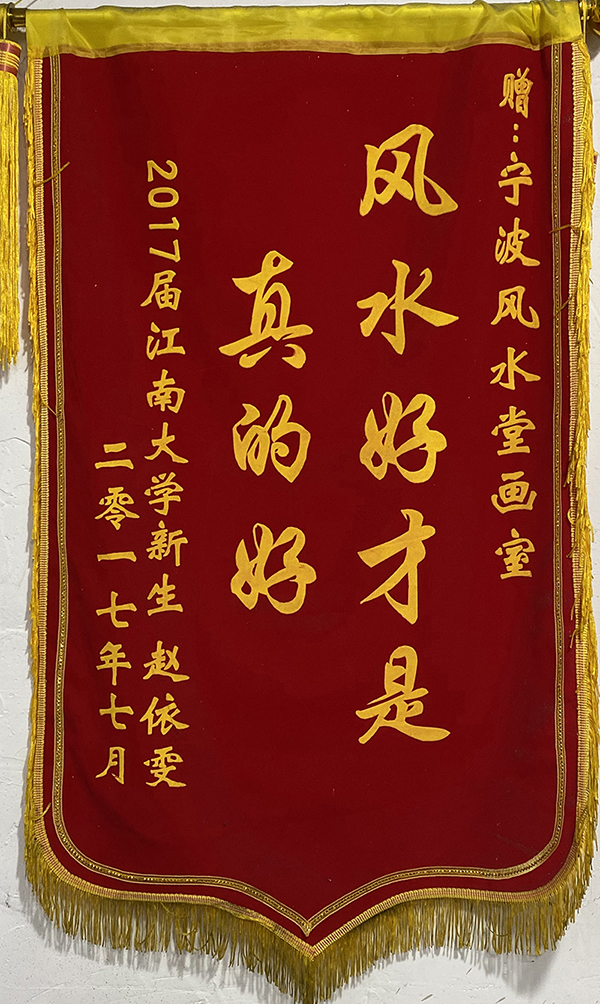 赠:宁波风水堂画室
风水好才是
真的好
2017届江南大学新生 赵依雯
二零一七年七月